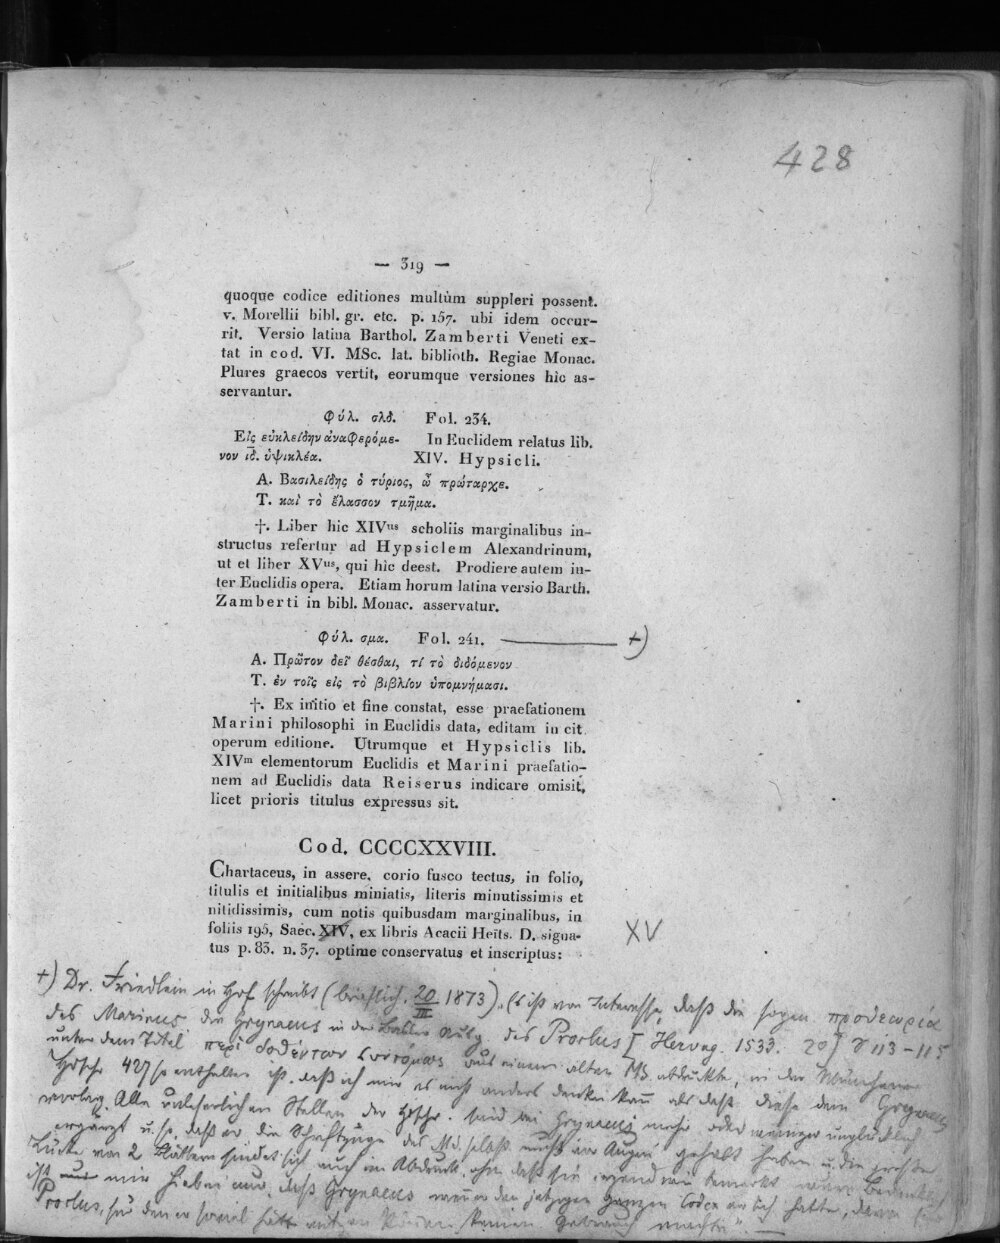 428
— 319 —
quoque codice editiones multùm suppleri possent.
v. Morellii bibl. gr. etc. p. 157. ubi idem occur-
rit. Versio latina Barthol. Zamberti Veneti ex-
tat in cod. VI. MSc. lat. biblioth. Regiae Monac.
Plures graecos vertit, eorumque versiones hic as-
servantur.
Φύλ. σλδ. Fol. 234.
Εἰς εὐκλείδην ἀναφερόμε- In Euclidem relatus lib.
νον ιδ. ὑψικλέα. XIV. Hypsicli.
Α. Βασιλείδης ὁ τύριος, ὦ πρώταρχε.
Τ. καὶ τὸ ἔλασσον τμῆμα.
†. Liber hic XIVus scholiis marginalibus in-
structus refertur ad Hypsiclem Alexandrinum,
ut et liber XVus, qui hic deest. Prodiere autem in-
ter Euclidis opera. Etiam horum latina versio Barth.
Zamberti in bibl. Monac. asservatur.
Φύλ. σμα. Fol. 241. +)
Α. Πρῶτον δεῖ θέσθαι, τί τὸ διδόμενον
Τ. ἐν τοῖς εἰς τὸ βιβλίον ὑπομνήμασι.
†. Ex initio et fine constat, esse praefationem
Marini philosophi in Euclidis data, editam in cit.
operum editione. Utrumque et Hypsiclis lib.
XIVm elementorum Euclidis et Marini praefatio-
nem ad Euclidis data Reiserus indicare omisit,
licet prioris titulus expressus sit.
Cod. CCCCXXVIII.
Chartaceus, in assere, corio fusco tectus, in folio,
titulis et initialibus miniatis, literis minutissimis et
nitidissimis, cum notis quibusdam marginalibus, in
foliis 195, Saec. XIV, ex libris Acacii Heits. D. signa- XV
tus p. 83. n. 37. optime conservatus et inscriptus:
+) Dr. Friedlein in Hof schreibt (brieflich 20/III 1873). Es ist von Interesse, daß die sogen προθεωρία
des Marinus die Grynaeus in der Basler Ausg des Proclus [Hervag. 1533. 20] 113-115
unter dem Titel περὶ δοθέντων συντόμως aus einem alten MS. abdruckte, in der Münchener
Hdschr 427 so enthalten ist, daß ich mir es nicht anders denken kann als daß diese dem Grynaeus
vorlag. Alle Stellen der Hdschr. sind bei Grynaeus mehr oder weniger unglücklich
ergänzt u. so, daß er die Schriftzüge des Ms. selbst nicht vor Augen gehabt haben u. die große
Lücke von 2 Blättern findet sich auch im Abdruck, ohne daß sie irgendwie bemerkt wäre.
ist mir hiebei nur, daß Grynaeus wenn er den jetzigen ganzen Codex vor sich hatte, dann
Proclus, für den er sonst hatte keinen Gebrauch machte" —